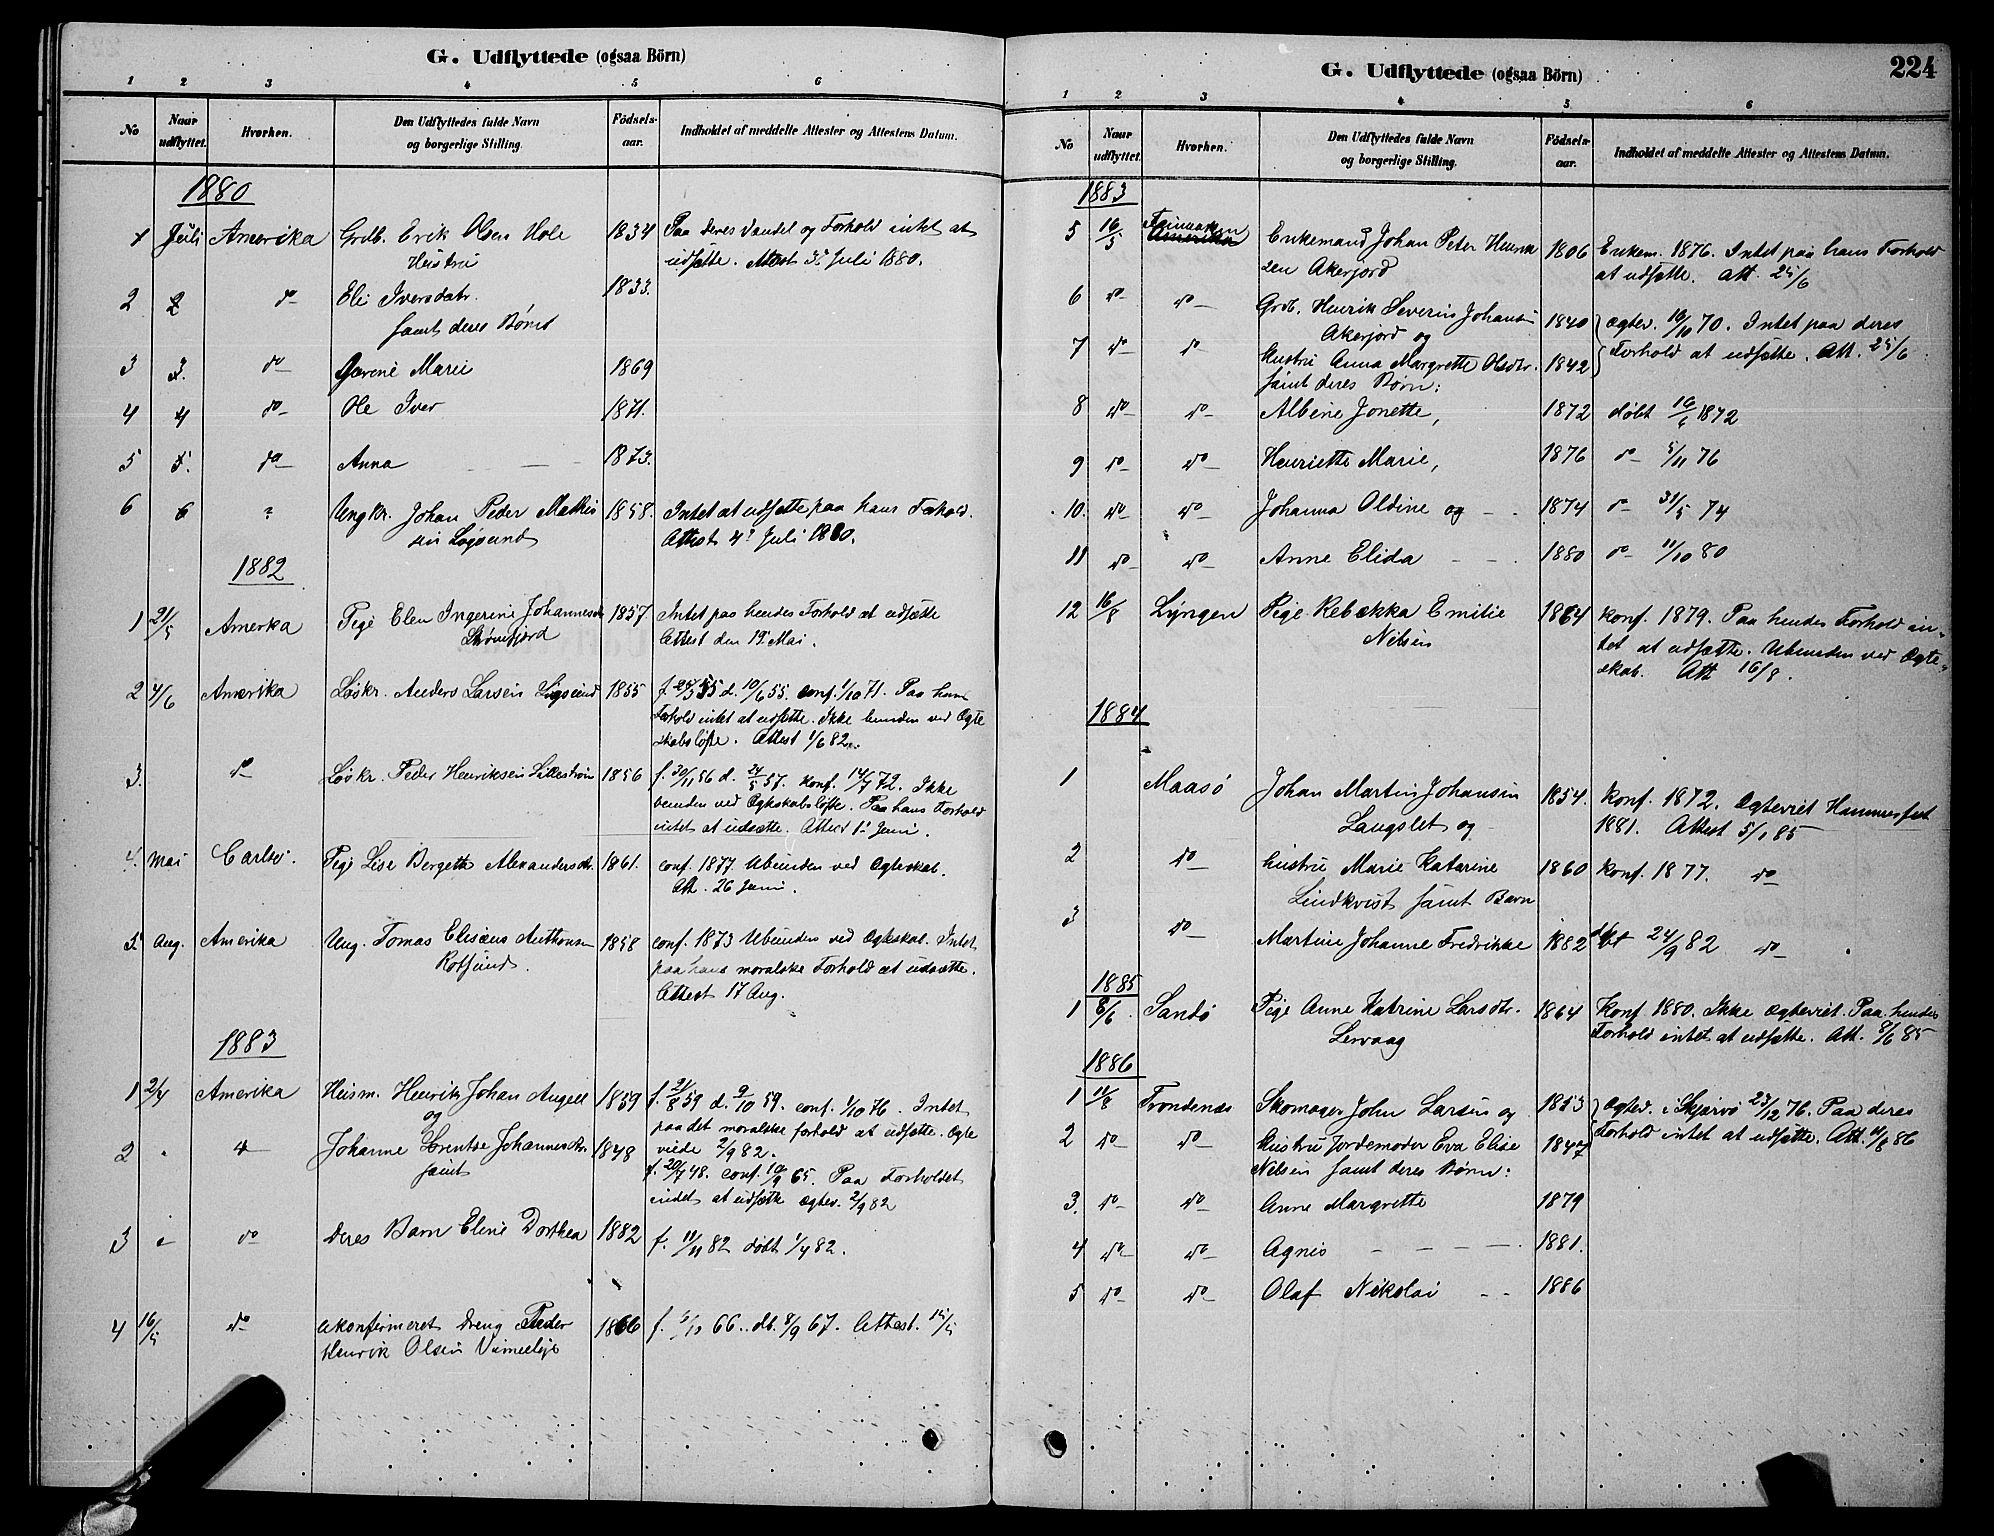 G. Udflyttede (ogsaa Börn)
1 2 3 4 5 6
No Naar udflyttet. Hvorhen. Den Udflyttedes fulde Navn og borgerlige Stilling. Födsels-aar. Indholdet af meddelte Attester og Attestens Datum.
1880
1 Juli Amerika Grdb. Erik Olsen Hole 1834 Paa deres Vandel og Forhold intet at
Hustru udsætte. Attest Juli 1880.
2 2 do Eli Iversdatr. 1833.
samt deres Børn
3 3. do Marie 1869
4 4 do Ole Iver 1871.
5 5. do Anna 1873.
6 6 Ungkr. Johan Peder Mathis 1858. Intet at udsætte paa hans Forhold.
sen Attest 4de Juli 1880.
1882
1 21/5 Amerika Pige Elen Ingerine Johannesdr 1857. Intet paa hendes Forhold at udsætte
Attest den 19 Mai.
2 4/6 Amerika Løskr. Anders Larsen 1855 f. d. 10/6 55. conf. 1/10 71. Paa hans
Forhold intet at udsætte. Ikke bunden ved Ægte
skabsløfte. Attest 1/6 82.
3. do Løskr. Peder Henriksen 1856 f. 30/11 56 d. 24/5 57. Konf. 14/7 72. Ikke
bunden ved Ægteskabsløfte. Paa hans Forhold
intet at udsætte. Attest 1 Juni.
4. Mai Carlsø. Pige Lise Bergette Alexandersdtr. 1861. conf. 1877. Ubunden ved Ægteskab.
Att. 26 Juni.
5. Aug. Amerika Ung. Tomas Elisæus Anthonsen 1858 conf. 1873 Ubunden ved Ægteskab. Intet
Rotsund. paa hans moralske Forhold at udsætte.
Attest 17 Aug.
1883
1 2/4 Amerika Husm. Henrik Johan Angell 1859 f. 21/8 59 d. 9/10 59. conf. 1/10 76. Intet
og paa det moralske forhold at udsætte. Ægte
viede 2/9 82.
2 do Johanne Lorentse Johannesdtr. 1848 f. 20/7 48. conf. 10/9 65. Paa Forholdet
samt intet at udsætte Ægtev. 2/9 82
3 do deres Barn Eline Dorthea 1882 f. 11/11 82 døbt 1/4 82.
4 16/5 do ukonfirmeret Dreng Peder 1866 f. 66. db. 8/9 67. Attest. 15/5
Henrik Olsen
G. Udflyttede (ogsaa Börn) 224
1 2 3 4 5 6
No Naar udflyttet. Hvorhen. Den Udflyttedes fulde Navn og borgerlige Stilling. Födsels-aar. Indholdet af meddelte Attester og Attestens Datum.
1883
5 16/5 Finmarken Enkemand Johan Peter Henrik 1806 Enkem. 1876. Intet paa hans Forhold
Amerika sen Akerjord at udsætte. Att. 25/6
6 do do Grdb. Henrik Severin Johansen 1840 Ægtev. 16/10 70. Intet paa deres
Akerjord og
7 do do Hustru Anna Margrette Olsdtr. 1842 Forhold at udsætte. Att. 25/6
samt deres Børn:
8 do do Albine Jonette, 1872 døbt 16/6 1872
9 do do Henriette Marie, 1876 do 5/11 76
10. do do Johanna Oldine og 1874 do 31/5 74
11 do do Anne Elida 1880 do 11/10 80
12 16/8 Lyngen Pige Rebækka Emilie 1864 konf. 1879. Paa hendes Forhold in-
Nilsen tet at udsætte. Ubunden ved Ægte-
skab. Att 16/8.
1884
1 Maasø Johan Martin Johansen 1854. konf. 1872. Ægteviet Hammerfest
Langslet og 1881. Attest 5/1 85
2 do hustru Marie Katarine 1860 konf. 1877. do
Lindkvist samt Barn
3 do Martine Johanne Fredrikke 1882 døbt 24/9 82 do
1885
1 8/6 Sandø Pige Anne Katrine Larsdtr. 1864 Konf 1880. Ikke Ægteviet. Paa hendes
Lervaag Forhold intet at udsætte. Att. 8/6 85
1886
1 11/8 Trondenæs Skomager John Larsen og 1853 Ægtev. i Skjærvø 23/12 76. Paa deres
2 do do Hustru Jordemoder Eva Elise 1847 Forhold intet at udsætte. Att. 11/8 86
Nilsen samt deres Børn:
3. do do Anne Margrette 1879
4 do do Agnes 1881.
5 do do Olaf Nikolai 1886